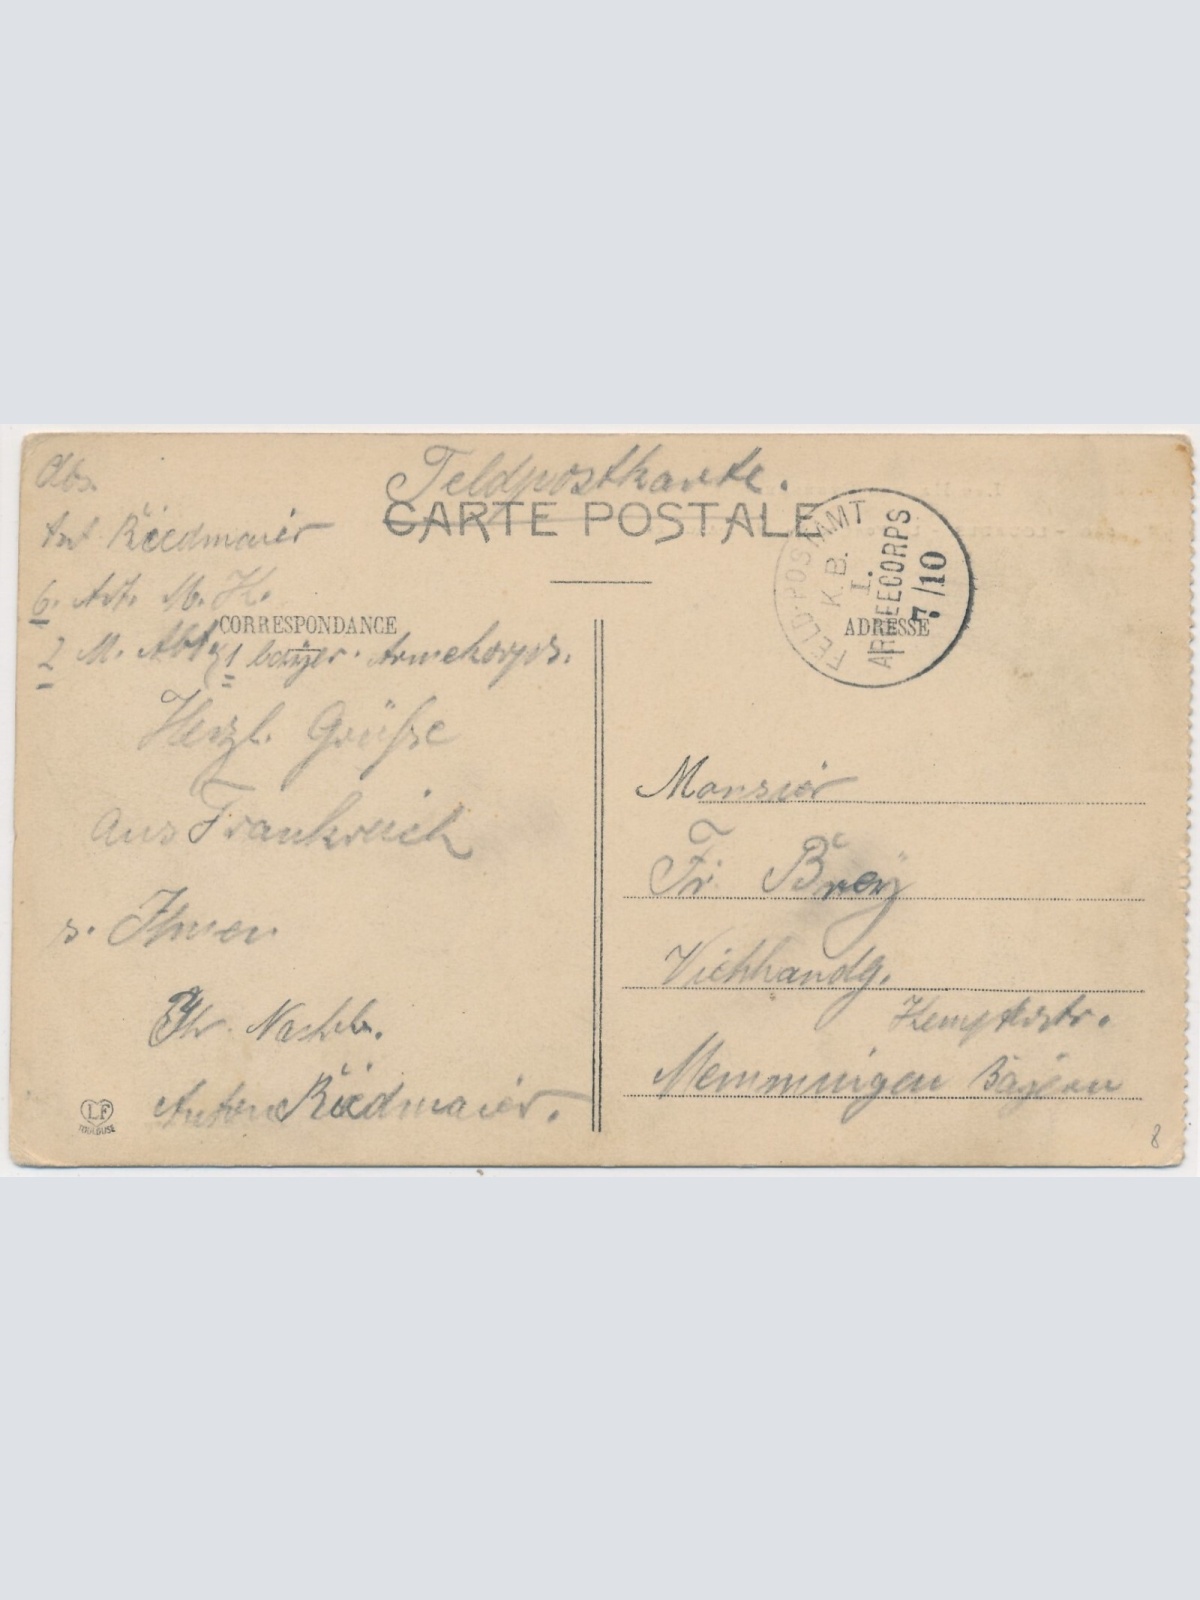 Feldpostkarte.
CARTE POSTALE
Abs.
Ant. Riedmaier
6. Art. M. K.
2 M. Abt. 1 bayer. Armekorps.
CORRESPONDANCE
Herzl. Grüße
aus Frankreich
s. Ihnen
Ihr Nachb.
Anton Riedmaier.
LF
TOULOUSE
FELD-POSTAMMT
K. B.
I.
ARMEECORPS
7/10
ADRESSE
Monsiör
Fr. Brey
Viehhandg.
Kemptstr.
Memmingen Bayern
8